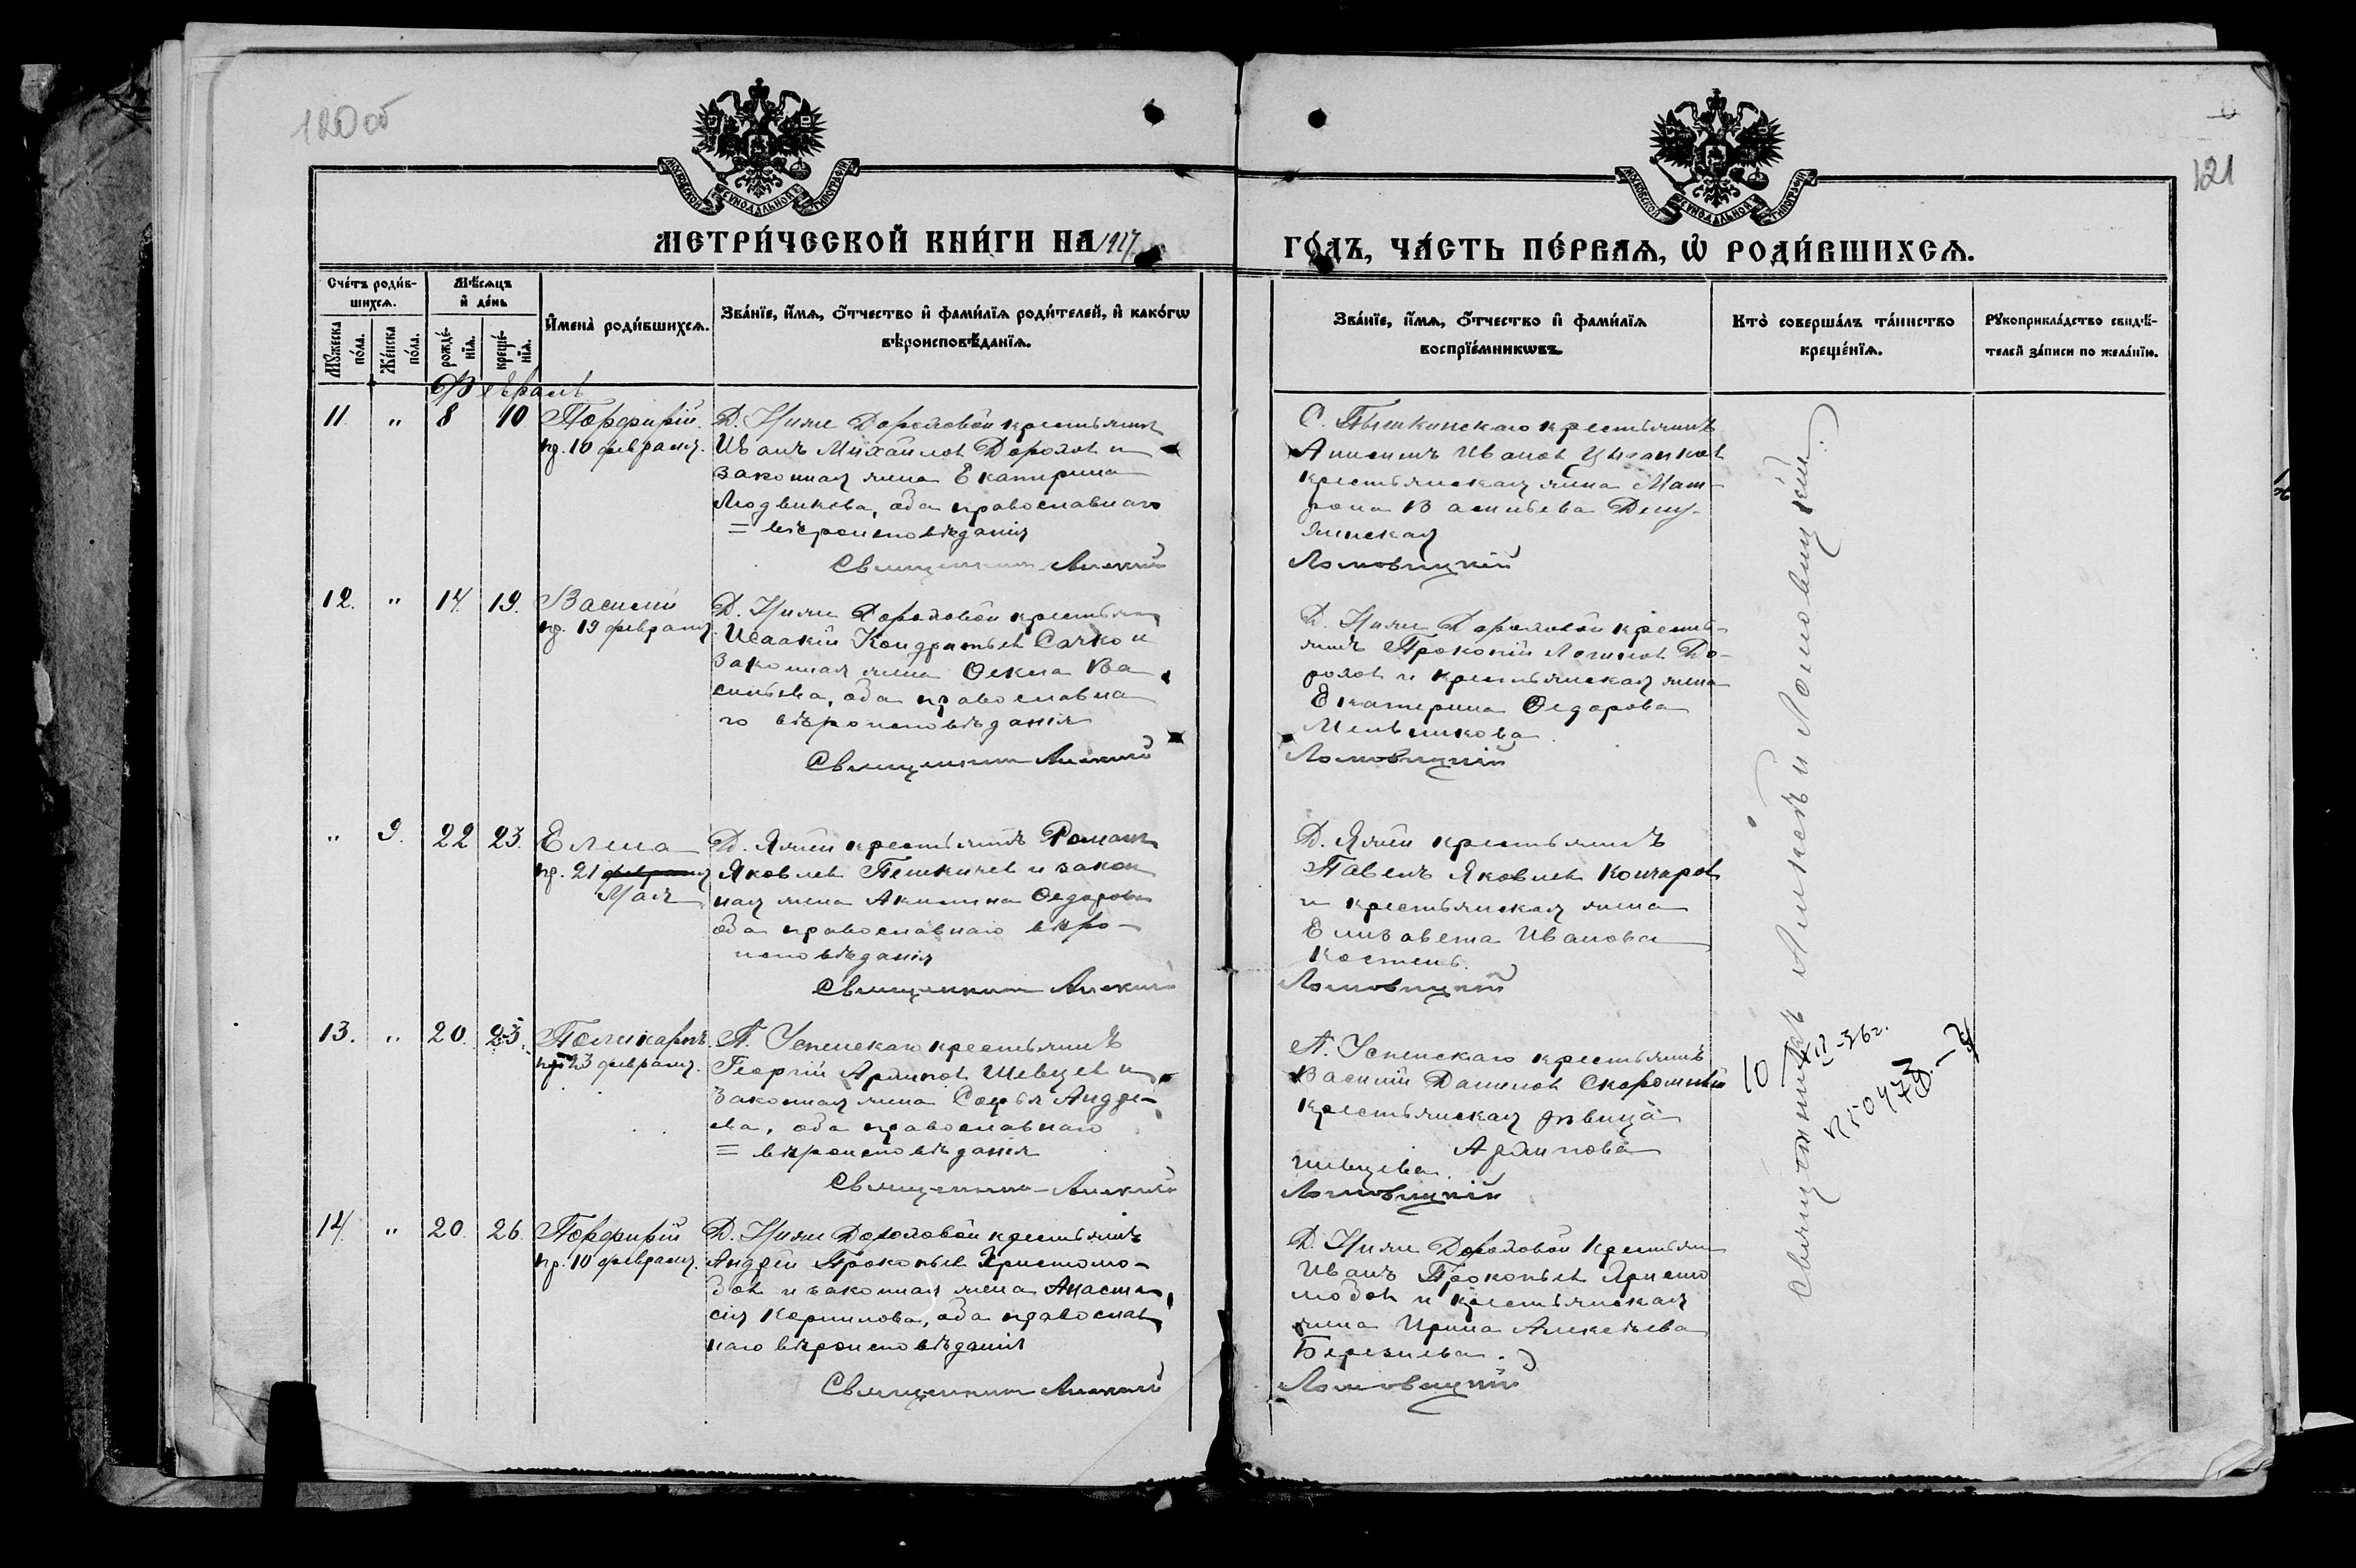 120 об
121
МОСКОВСКОЙ СУНОДАЛЬНОЙ ТИПОГРАФІИ
МОСКОВСКОЙ СУНОДАЛЬНОЙ ТИПОГРАФІИ
МЕТРИ́ЧЕСКОЙ КНИ́ГИ НА 1917
ГО́ДЪ, ЧА́СТЬ ПЕ́РВАЯ, Ѡ҆ РОДИ́ВШИХСЯ.
Сче́тъ роди́в-
шихся.
Мꙋ́жеска по́ла.
Же́нска по́ла.
Мѣ́сяцъ
и҆ де́нь
рожде́-
нїя.
креще́-
нїя.
И҆мена̀ роди́вшихся.
Зва́нїе, и҆́мя, ѻ҆́тчество и҆ фами́лїя роди́телей, и҆ како́гѡ
вѣроисповѣ́данїя.
Зва́нїе, и҆́мя, ѻ҆́тчество и҆ фами́лїя
воспрїе́мникѡвъ.
Кто̀ соверша́лъ та́инство
креще́нїя.
Рꙋкоприкла́дство свидѣ́-
телей за́писи по жела́нїю.
Февраль
11 " 8 10 Порфирій
пр. 10 февраля.
Д. Ниже Дороловой крестьянинъ
Иванъ Михайловъ Дороловъ и
законная жена Екатерина
Людвикова, оба православнаго
= вѣроисповѣданія
Священникъ Алексій
С. Пышкинскаго крестьянинъ
Анисимъ Ивановъ Цыганковъ
крестьянская жена Мат-
рона Васильева
Ломовицкій
12. " 14. 19. Василій
пр. 19 февраля.
Д. Ниже Дороловой крестьян
Исаакій Кондратьевъ Сачко и
законная жена Ѳекла Ва
сильева, оба православна
го вѣроисповѣданія
Священникъ Алексій
Д. Ниже Дороловой крестья-
нинъ Прокопій Логиновъ До-
роловъ и крестьянская жена
Екатерина Ѳедорова
Мельникова
Ломовицкій
" 9. 22 23. Елена
пр. 21 февраля
Мая
Д. Яжеи крестьянинъ Романъ
Яковлевъ и закон
ная жена Акилина Ѳедорова
оба православнаго вѣро-
исповѣданія
Священникъ Алексій
Д. Яжеи крестьянинъ
Павелъ Яковлевъ Кончаровъ
и крестьянская жена
Елизавета Иванова
Костень.
Ломовицкій
13. " 20. 23. Поликарпъ
пр. 23 февраля.
П. Успенскаго крестьянинъ
Георгій Архиповъ Шевцевъ и
законная жена Софья Андре-
ева, оба православнаго
= вѣроисповѣданія
Священникъ Алексій
П. Успенскаго крестьянинъ
Василій Даниловъ Скоромный
крестьянская дѣвица
Архипова
Шевцева.
Ломовицкій
14. " 20. 26. Порфирій
пр. 10 февраля.
Д. Ниже Дороловой крестьянинъ
Андрей Прокопьевъ Христолю-
бовъ и законная жена Анаста-
сія Корнилова, оба православ
наго вѣроисповѣданія
Священникъ Алексій
Д. Ниже Дороловой крестьян
Иванъ Прокопьевъ Христо
любовъ и крестьянская
жена Ирина Алексѣева
Березнева.
Ломовицкій
Священникъ Алексѣй Ломовицкій.